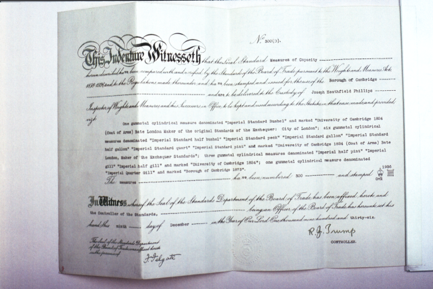 No
This Indenture Witnesseth that the Local Standard Measures of Capacity
have been compared with and verified by the Standards of the Board of Trade pursuant to the Weights and Measures Acts
and to the Regulations made thereunder and have been stamped and issued for the use of the Borough of Cambridge
and are to be delivered to the Custody of Joseph Phillips
Inspector of Weights and Measures and his Successors in Office to be kept and used according to the Statutes thereunto made and provided
One gunmetal cylindrical measure denominated "Imperial Standard Bushel" and marked "University of Cambridge 1824
Bate London Maker of the original Standards of the Exchequer: City of London"; six gunmetal cylindrical
measures denominated "Imperial Standard half Bushel" "Imperial Standard peck" "Imperial Standard gallon" "Imperial Standard
half gallon" "Imperial Standard quart" "Imperial Standard pint" and marked "University of Cambridge 1824 Bate
London, Maker of the Exchequer Standards"; three gunmetal cylindrical measures denominated "Imperial half pint" "Imperial
Gill" "Imperial half gill" and marked "University of Cambridge 1824"; one gunmetal cylindrical measure denominated
"Imperial Quarter Gill" and marked "Borough of Cambridge
The measures have been numbered and stamped
In Witness whereof the Seal of the Standards Department of the Board of Trade has been affixed hereto and
the Controller of the Standards, being an Officer of the Board of Trade has hereunto set his
hand this ninth day of December in the Year of Our Lord One thousand nine hundred and thirty-six.
The Seal of the Standards Department
of the Board of Trade was affixed hereto
in the presence of
R. J. Trump
CONTROLLER.